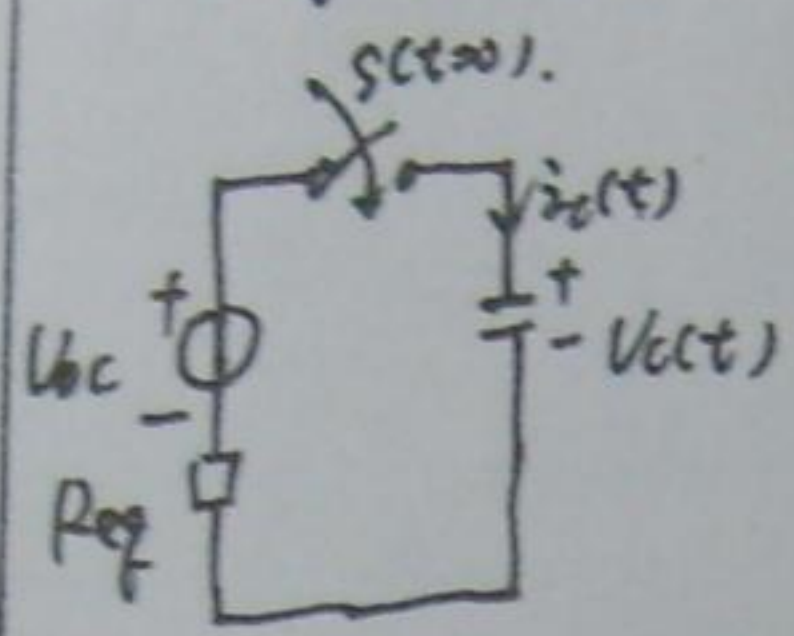 S(t=0).
ic(t)
+
+
Uoc
- Uc(t)
-
Req